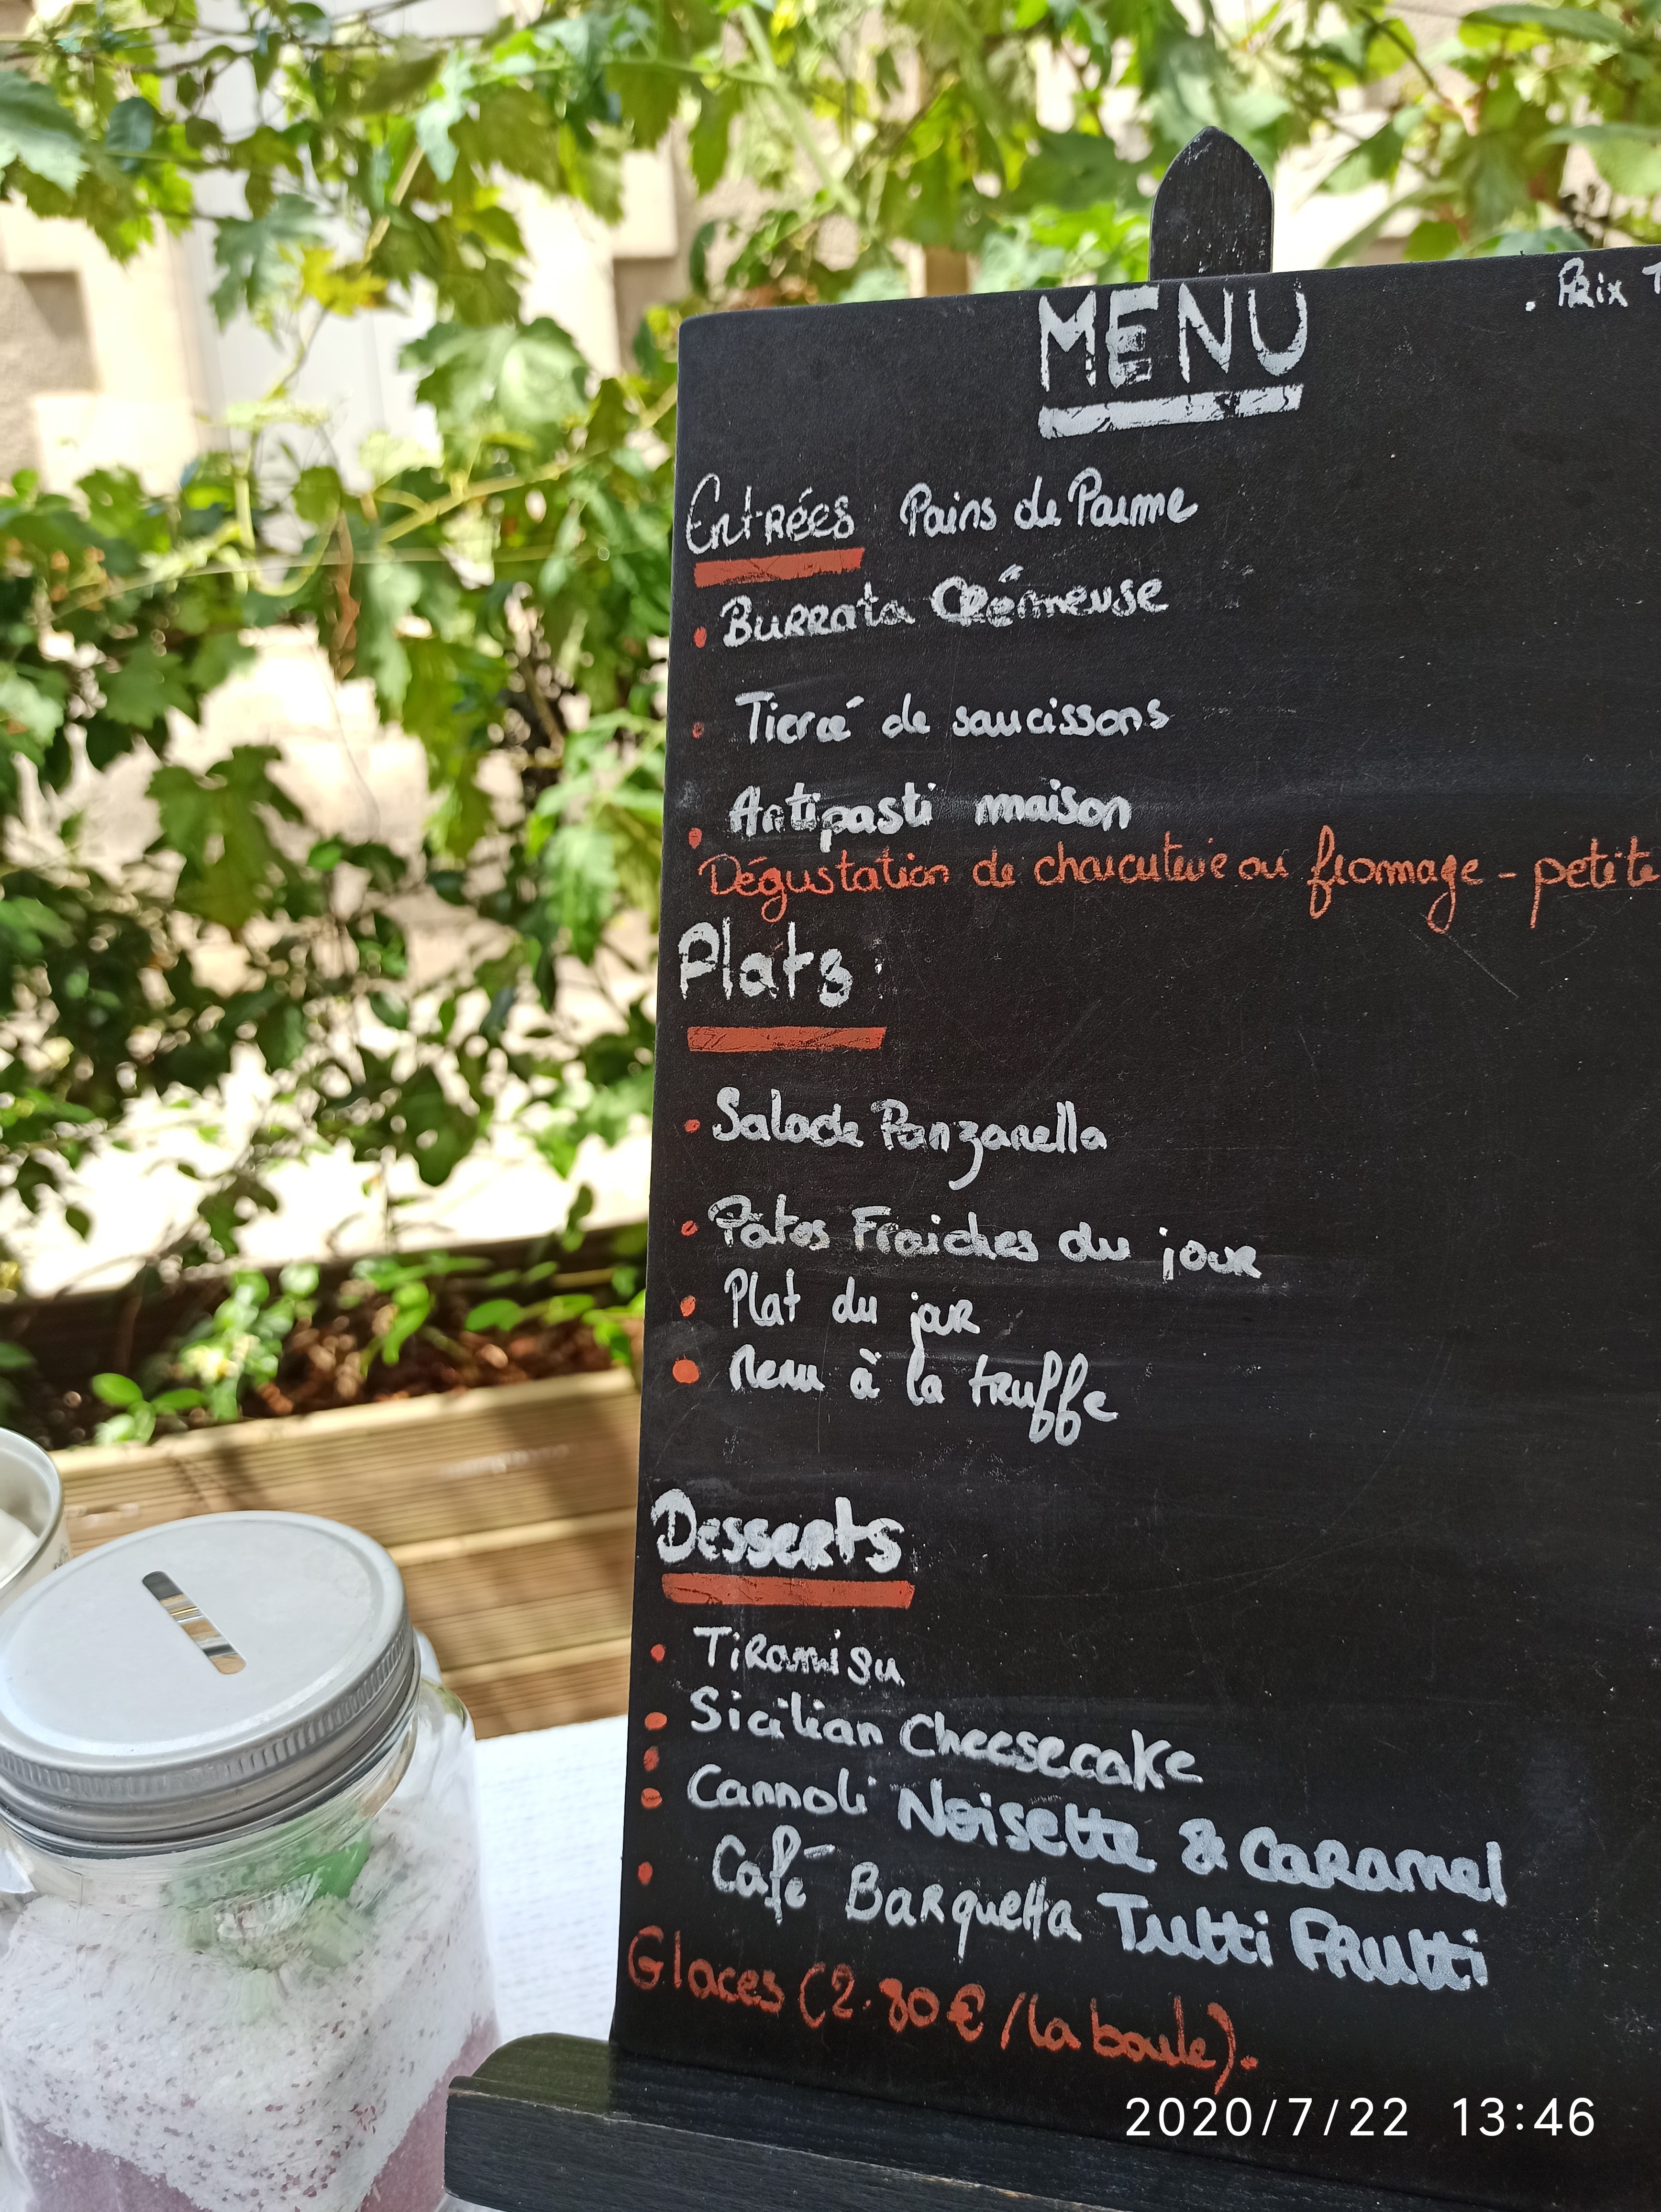 MENU
. Prix T
Entrées Pains de Paume
Burrata Crémeuse
Tiercé de saucissons
Antipasti maison
Dégustation de charcuterie ou fromage - petite
Plats:
Salade Panzanella
Pâtes Fraiches du jour
Plat du jour
Menu à la truffe
Desserts
Tiramisu
Sicilian Cheesecake
Cannoli Noisette & Caramel
Café Barquetta Tutti Frutti
Glaces (2.80€/la boule).
2020/7/22 13:46